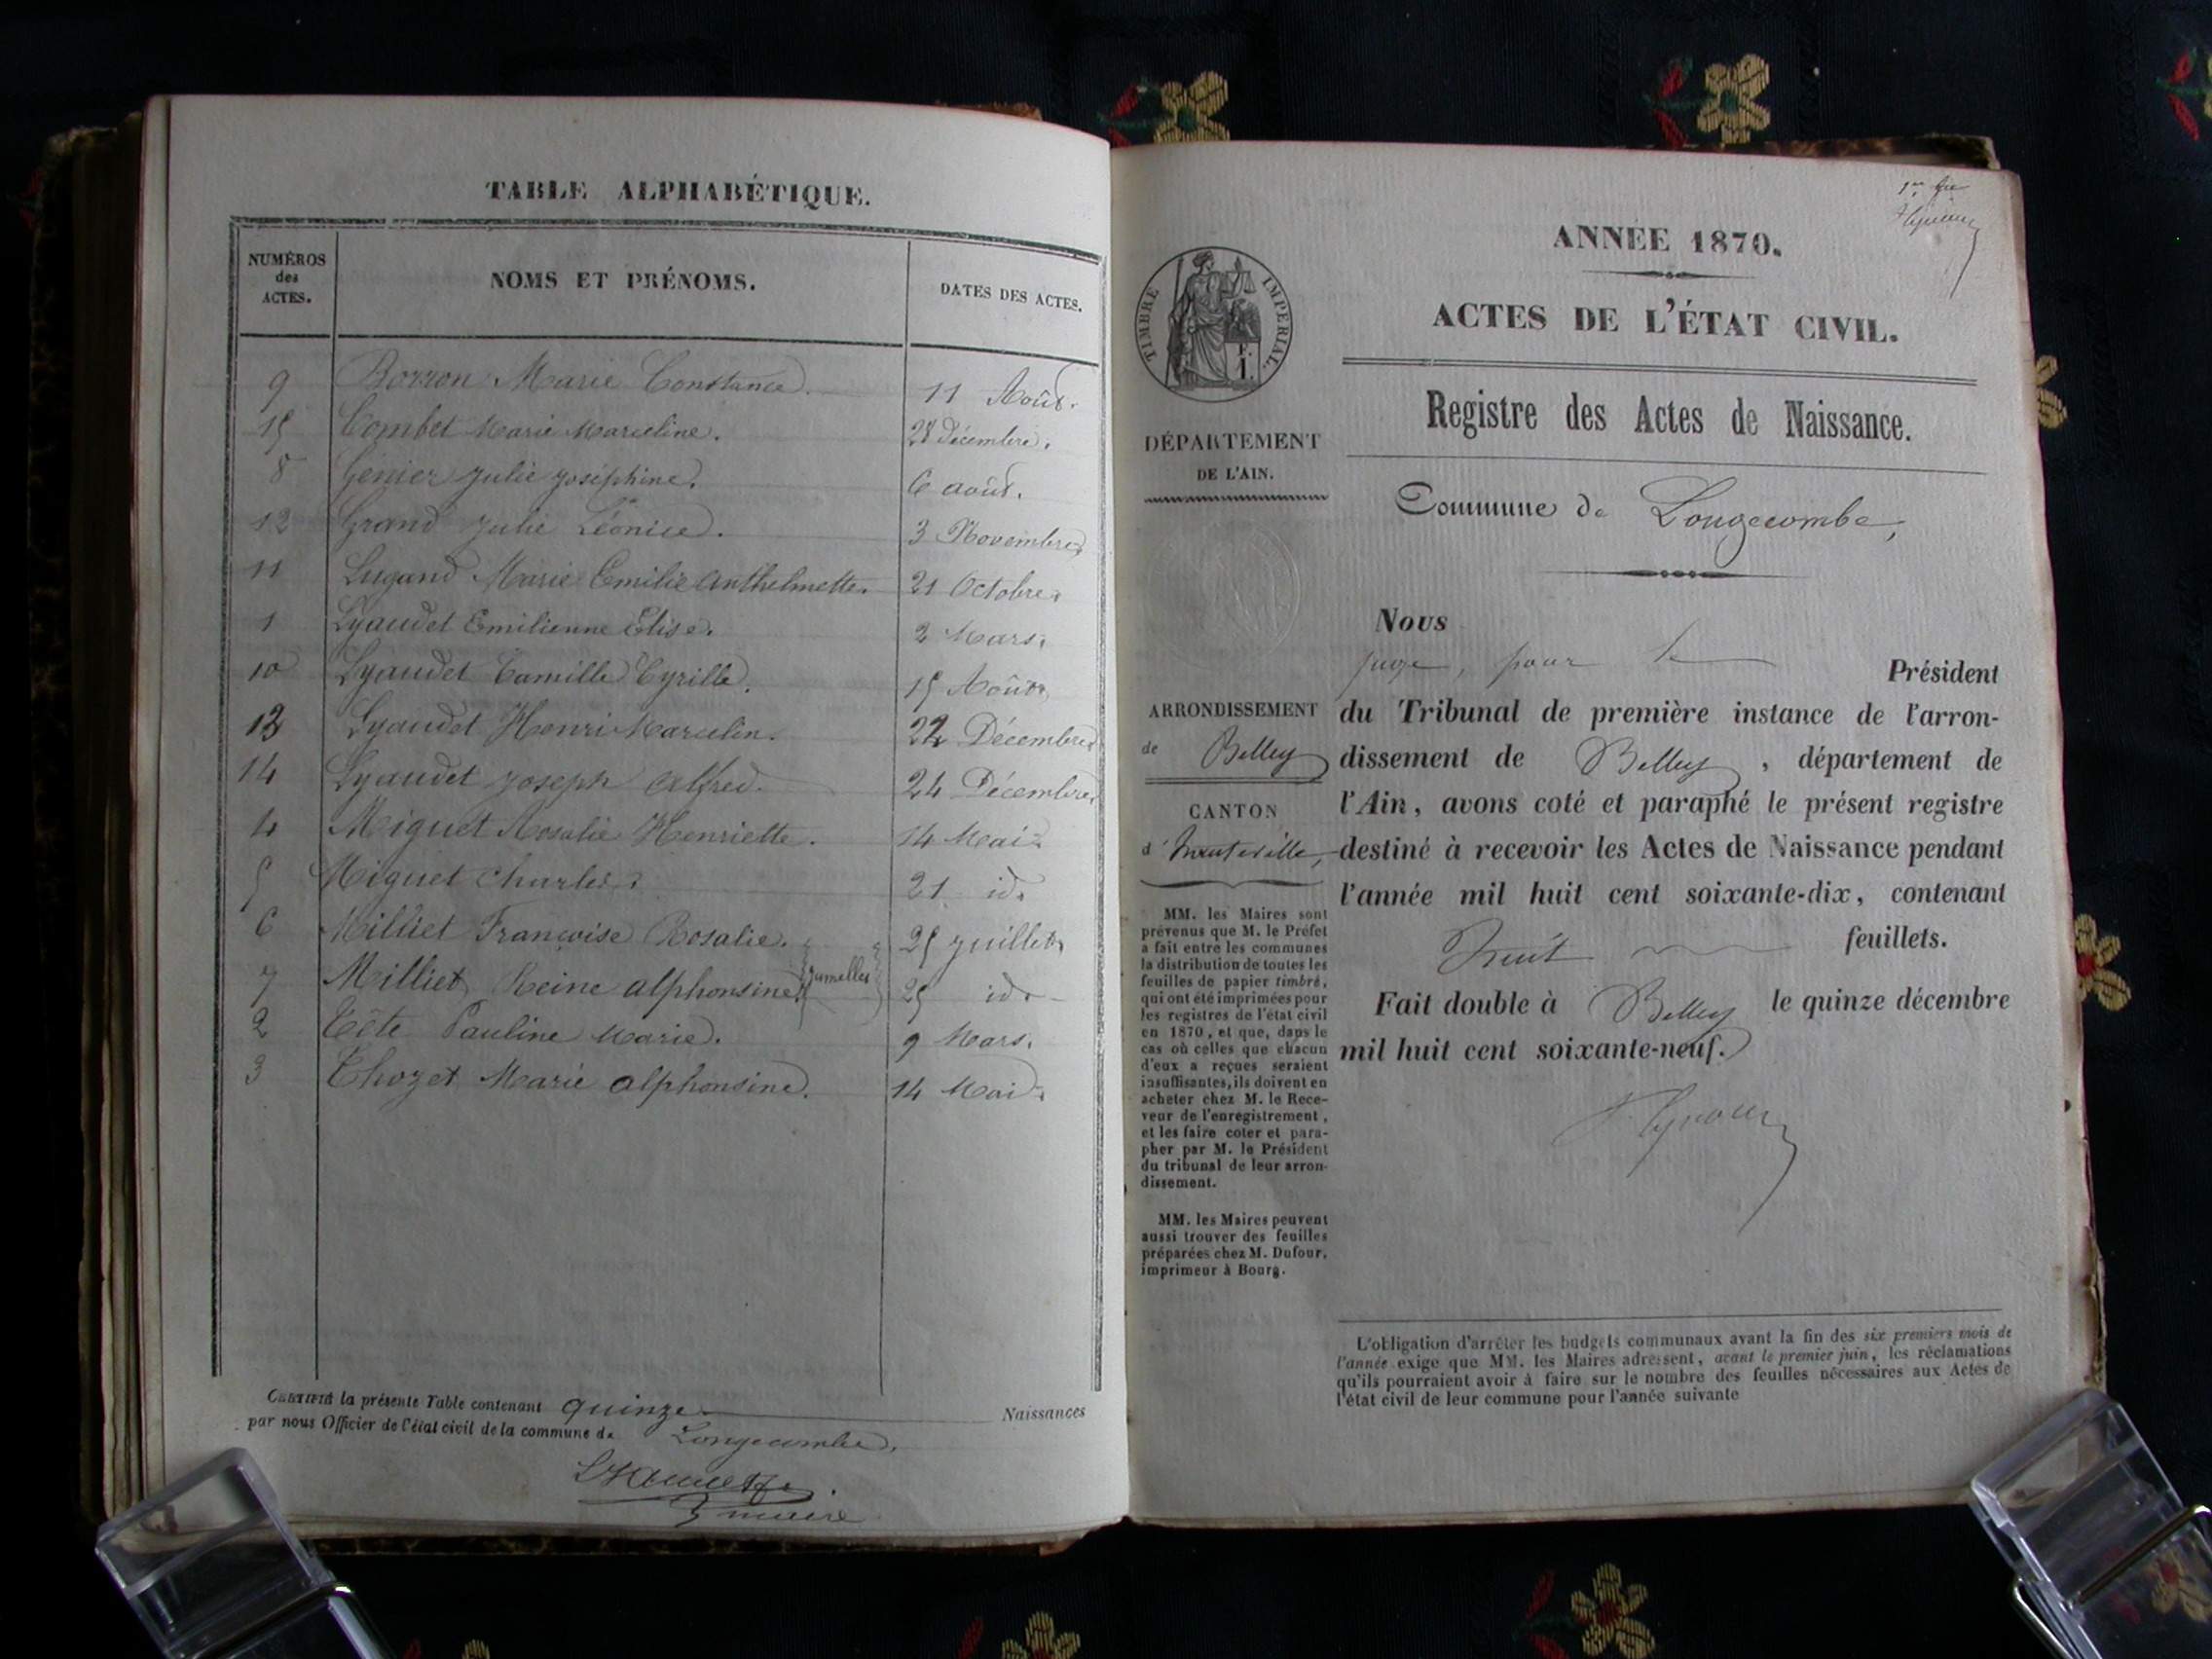 TABLE ALPHABÉTIQUE.
NUMÉROS des ACTES. NOMS ET PRÉNOMS. DATES DES ACTES.
9 Borron Marie Constance. 11 Août.
15 Combet Marie Marceline. 28 Décembre.
8 Genier Julie Joséphine. 6 août.
12 Grand Julie Léonice. 3 Novembre
11 Lugand Marie Emilie Anthelmette. 21 Octobre.
1 Lyaudet Emilienne Elise. 2 Mars.
10 Lyaudet Camille Cyrille. 15 Août
13 Lyaudet Henri Marcelin. 22 Décembre
14 Lyaudet Joseph Alfred. 24 Décembre
4 Miguet Rosalie Henriette. 14 Mai
5 Miguet Charles. 21 id.
6 Milliet Françoise Rosalie. 25 Juillet
7 Milliet Reine Alphonsine. Jumelles 25 id.
2 Tête Pauline Marie. 9 Mars.
3 Chozet Marie Alphonsine. 14 Mai
CERTIFIÉ la présente Table contenant quinze Naissances
par nous Officier de l'état civil de la commune de Longecombe.
maire
ANNÉE 1870.
ACTES DE L'ÉTAT CIVIL.
Registre des Actes de Naissance.
Commune de Longecombe,
TIMBRE IMPERIAL.
F. 1.
DÉPARTEMENT
DE L'AIN.
ARRONDISSEMENT
de Belley
CANTON
d' hauteville,
MM. les Maires sont
prévenus que M. le Préfet
a fait entre les communes
la distribution de toutes les
feuilles de papier timbré,
qui ont été imprimées pour
les registres de l'état civil
en 1870, et que, dans le
cas où celles que chacun
d'eux a reçues seraient
insuffisantes, ils doivent en
acheter chez M. le Rece-
veur de l'enregistrement,
et les faire coter et para-
pher par M. le Président
du tribunal de leur arron-
dissement.
MM. les Maires peuvent
aussi trouver des feuilles
préparées chez M. Dufour,
imprimeur à Bourg.
Nous
juge, pour le Président
du Tribunal de première instance de l'arron-
dissement de Belley, département de
l'Ain, avons coté et paraphé le présent registre
destiné à recevoir les Actes de Naissance pendant
l'année mil huit cent soixante-dix, contenant
huit feuillets.
Fait double à Belley le quinze décembre
mil huit cent soixante-neuf.
L'obligation d'arrêter les budgets communaux avant la fin des six premiers mois de
l'année exige que MM. les Maires adressent, avant le premier juin, les réclamations
qu'ils pourraient avoir à faire sur le nombre des feuilles nécessaires aux Actes de
l'état civil de leur commune pour l'année suivante